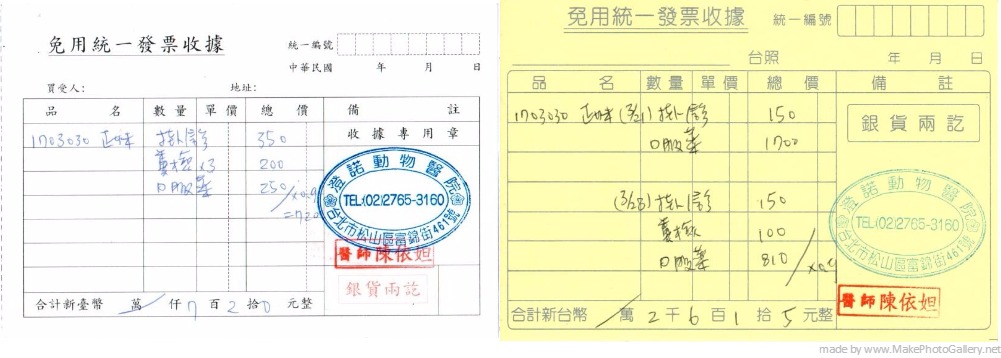 免用統一發票收據
統一編號
中華民國 年 月 日
買受人: 地址:
品 名 數量 單價 總價 備 註
收據專用章
1703030 掛診 350
x3 200
口服藥 250
x0.9
=720
澄諾動物醫院
TEL:(02)2765-3160
台北市松山區富錦街461號
醫師陳依妲
銀貨兩訖
合計新臺幣 萬 仟 7 百 2 拾 0 元整
免用統一發票收據
統一編號
台照 年 月 日
品 名 數量 單價 總價 備 註
1703030 (3/21) 掛診 150
口服藥 1700
銀貨兩訖
(3/28) 掛診 150
100
口服藥 810
x0.9
澄諾動物醫院
TEL:(02)2765-3160
台北市松山區富錦街461號
醫師陳依妲
合計新台幣 萬 2 千 6 百 1 拾 5 元整
made by www.MakePhotoGallery.net